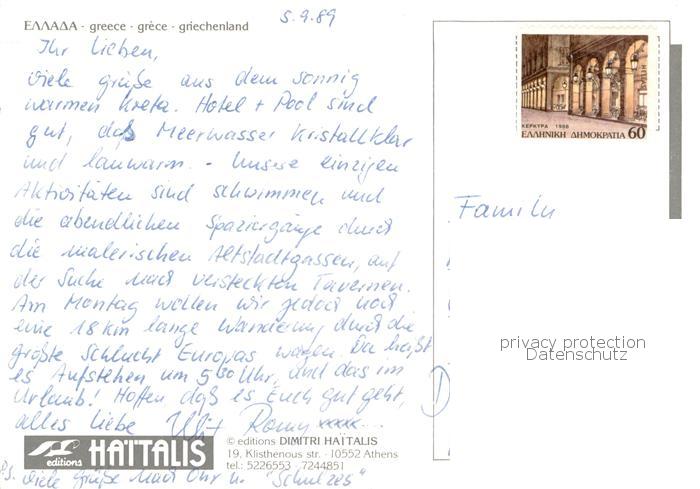 ΕΛΛΑΔΑ - greece - grèce - griechenland
5.9.89
Ihr Lieben,
viele grüße aus dem sonnig
warmen Kreta. Hotel + Pool sind
gut, das Meerwasser kristallklar
und lauwarm. - Unsere einzigen
Aktivitäten sind schwimmen und
die abendlichen Spaziergänge durch
die malerischen Altstadtgassen, auf
der Suche nach versteckten Tavernen.
Am Montag wollen wir jedoch noch
eine 18 km lange Wanderung durch die
größte Schlucht Europas wagen. Da heißt
es Aufstehen um 5 30 Uhr, und das im
Urlaub! Hoffen daß es Euch gut geht,
alles liebe Romy
PS. viele Grüße nach u. "Schulzes"
ΚΕΡΚΥΡΑ 1988
ΕΛΛΗΝΙΚΗ ΔΗΜΟΚΡΑΤΙΑ 60
Familie
D
privacy protection
Datenschutz
editions HAÏTALIS
© editions DIMITRI HAÏTALIS
19, Klisthenous str. - 10552 Athens
tel.: 5226553 - 7244851